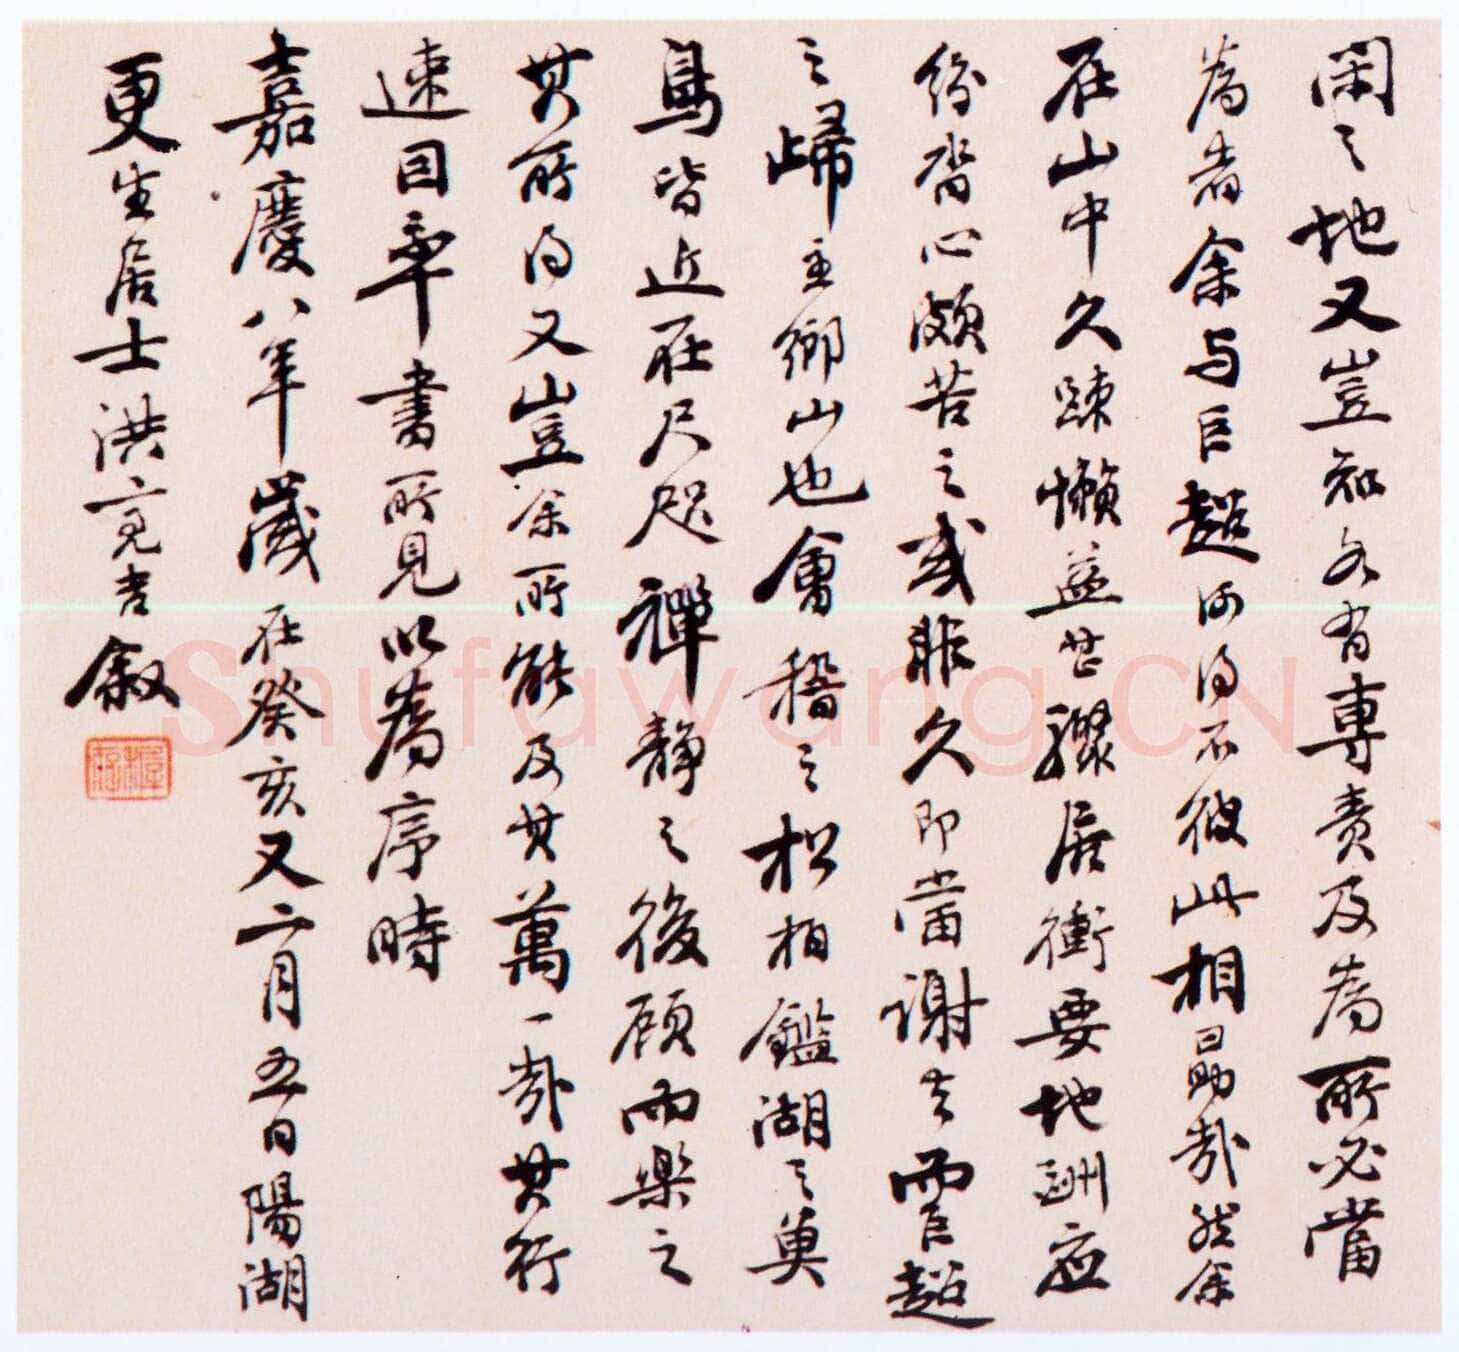 閑之地又豈知各有專責及為所必當
為者余与巨超何得不彼此相勗哉然余
在山中久踈懶益甚驟居衝要地酬應
紛沓心頗苦之或非久即當謝去而巨超
之歸主鄉山也會稽之松栢鑑湖之魚
鳥皆近在尺咫禪静之後顧而樂之
其所得又豈余所能及其萬一哉其行
速因率書所見以為序時
嘉慶八年歲在癸亥又二月五日陽湖
更生居士洪亮吉叙
Shufawang.CN